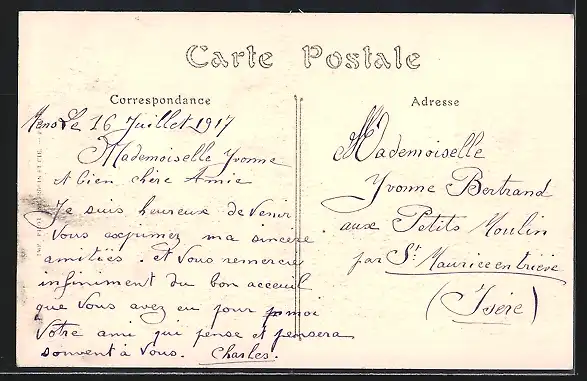 Carte Postale
Correspondance
Adresse
Le 16 Juillet 1917
Mademoiselle Yvonne
et bien chère Amie
Je suis heureux de venir
vous exprimez ma sincère
amitiées. et vous remercie
infiniment du bon acceuil
que vous avez eu pour moi
Votre ami qui pense et pensera
souvent à vous. Charles.
Mademoiselle
Yvonne Bertrand
aux Petits Moulin
par St Maurice en trieve
(Isère)